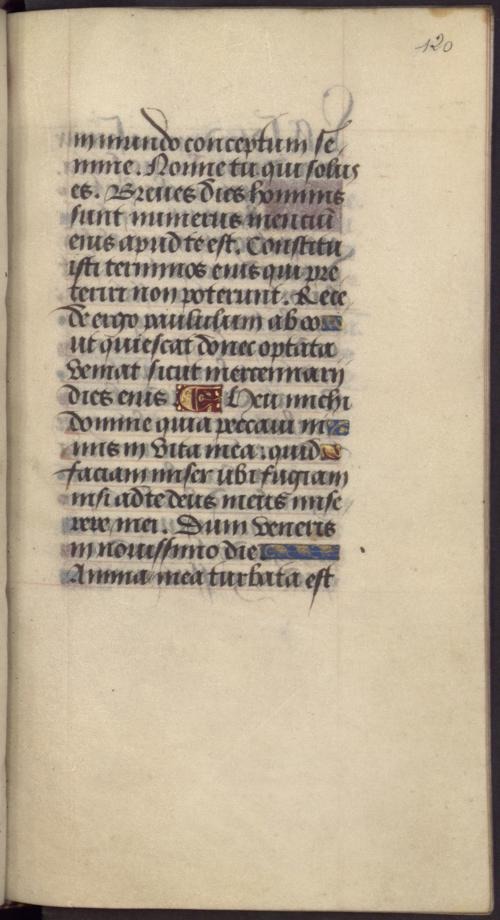 120
in mundo conceptum se
mine. Nonne tu qui solus
es. Breues dies hominis
sunt numerus mencium
eius apud te est. Constitu
isti terminos eius qui pre
teriri non poterunt. Rece
de ergo paululum ab eo
ut quiescat donec optata
veniat sicut mercennarij
dies eius. Heu michi
domine quia peccaui ni
mis in vita mea. quid
faciam miser ubi fugiam
nisi ad te deus meus mise
rere mei. Dum veneris
in nouissimo die
Anima mea turbata est